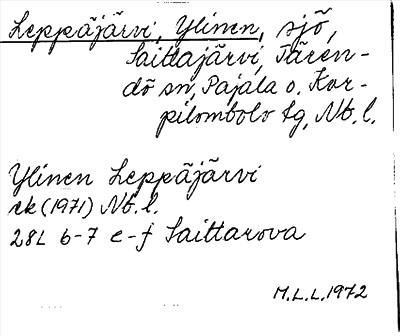 Leppäjärvi, Ylinen, sjö,
Saittajärvi, Tären-
dö sn, Pajala o. Kor-
pilombolo tg, Nb. l.
Ylinen Leppäjärvi
ek (1971) Nb. l.
28L 6-7 e-f Saittarova
M.L.L. 1972